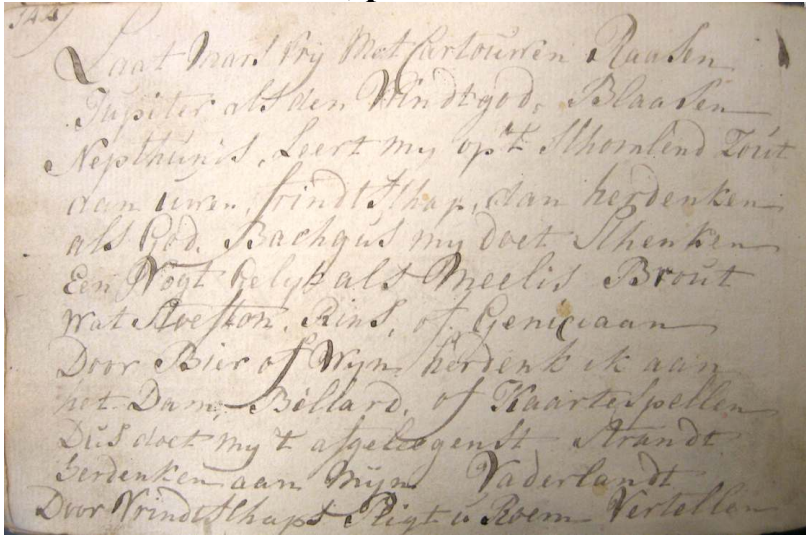 144
Laat Mars Vrij Met Cartouwen Raasen
Jupiter als den Windtgod, Blaasen
Nepthunis, Leert my op't Schomlend Zout
aan uwen, frindtschap, dan herdenken
als God. Bachgus my doet Schenken
Een Vogt Gelyk als Meelis Brout
Wat Rins, of
Door Bier of Wyn herdenk ik aan
het Dam, Bellard, of Kaartespellen
Dus doet my t afgeleegenst Strandt
herdenken aan Mijn Vaderlandt
Door Vrindtschaps Pligt u Roem Vertellen